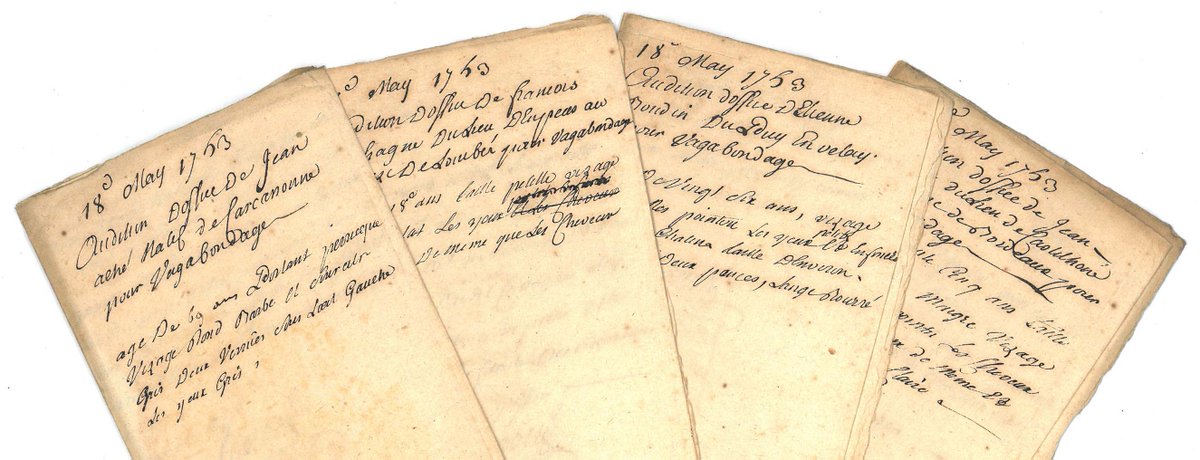 18e May 1763
Audition doffice de Jean
aché Natif de Carcanonne
pour Vagabondage
age De 69 ans Portant perruque
Vizage Rond Barbe et Sourcils
Gris Deux Verrues Sous Loeil Gauche
Les yeux Gris
May 1763
dition doffice de francois
hagne Du Lieu
De Lombés pour Vagabondage
18e ans taille petitte vizage
lat Les yeux
De meme que Les Cheveux
18e May 1763
Audition doffice DEtienne
Bondin Du Puy En velay
pour Vagabondage
De Vingt Six ans, vizage
Les yeux petits Enfoncés
taille Denviron
Deux pouces, Linge Bourré
May 1763
dition doffice de Jean
du Lieu de
de Bordeaux pour
dage
Cinq ans taille
Maigre Vizage
Les Cheveux
de meme Et
Claire